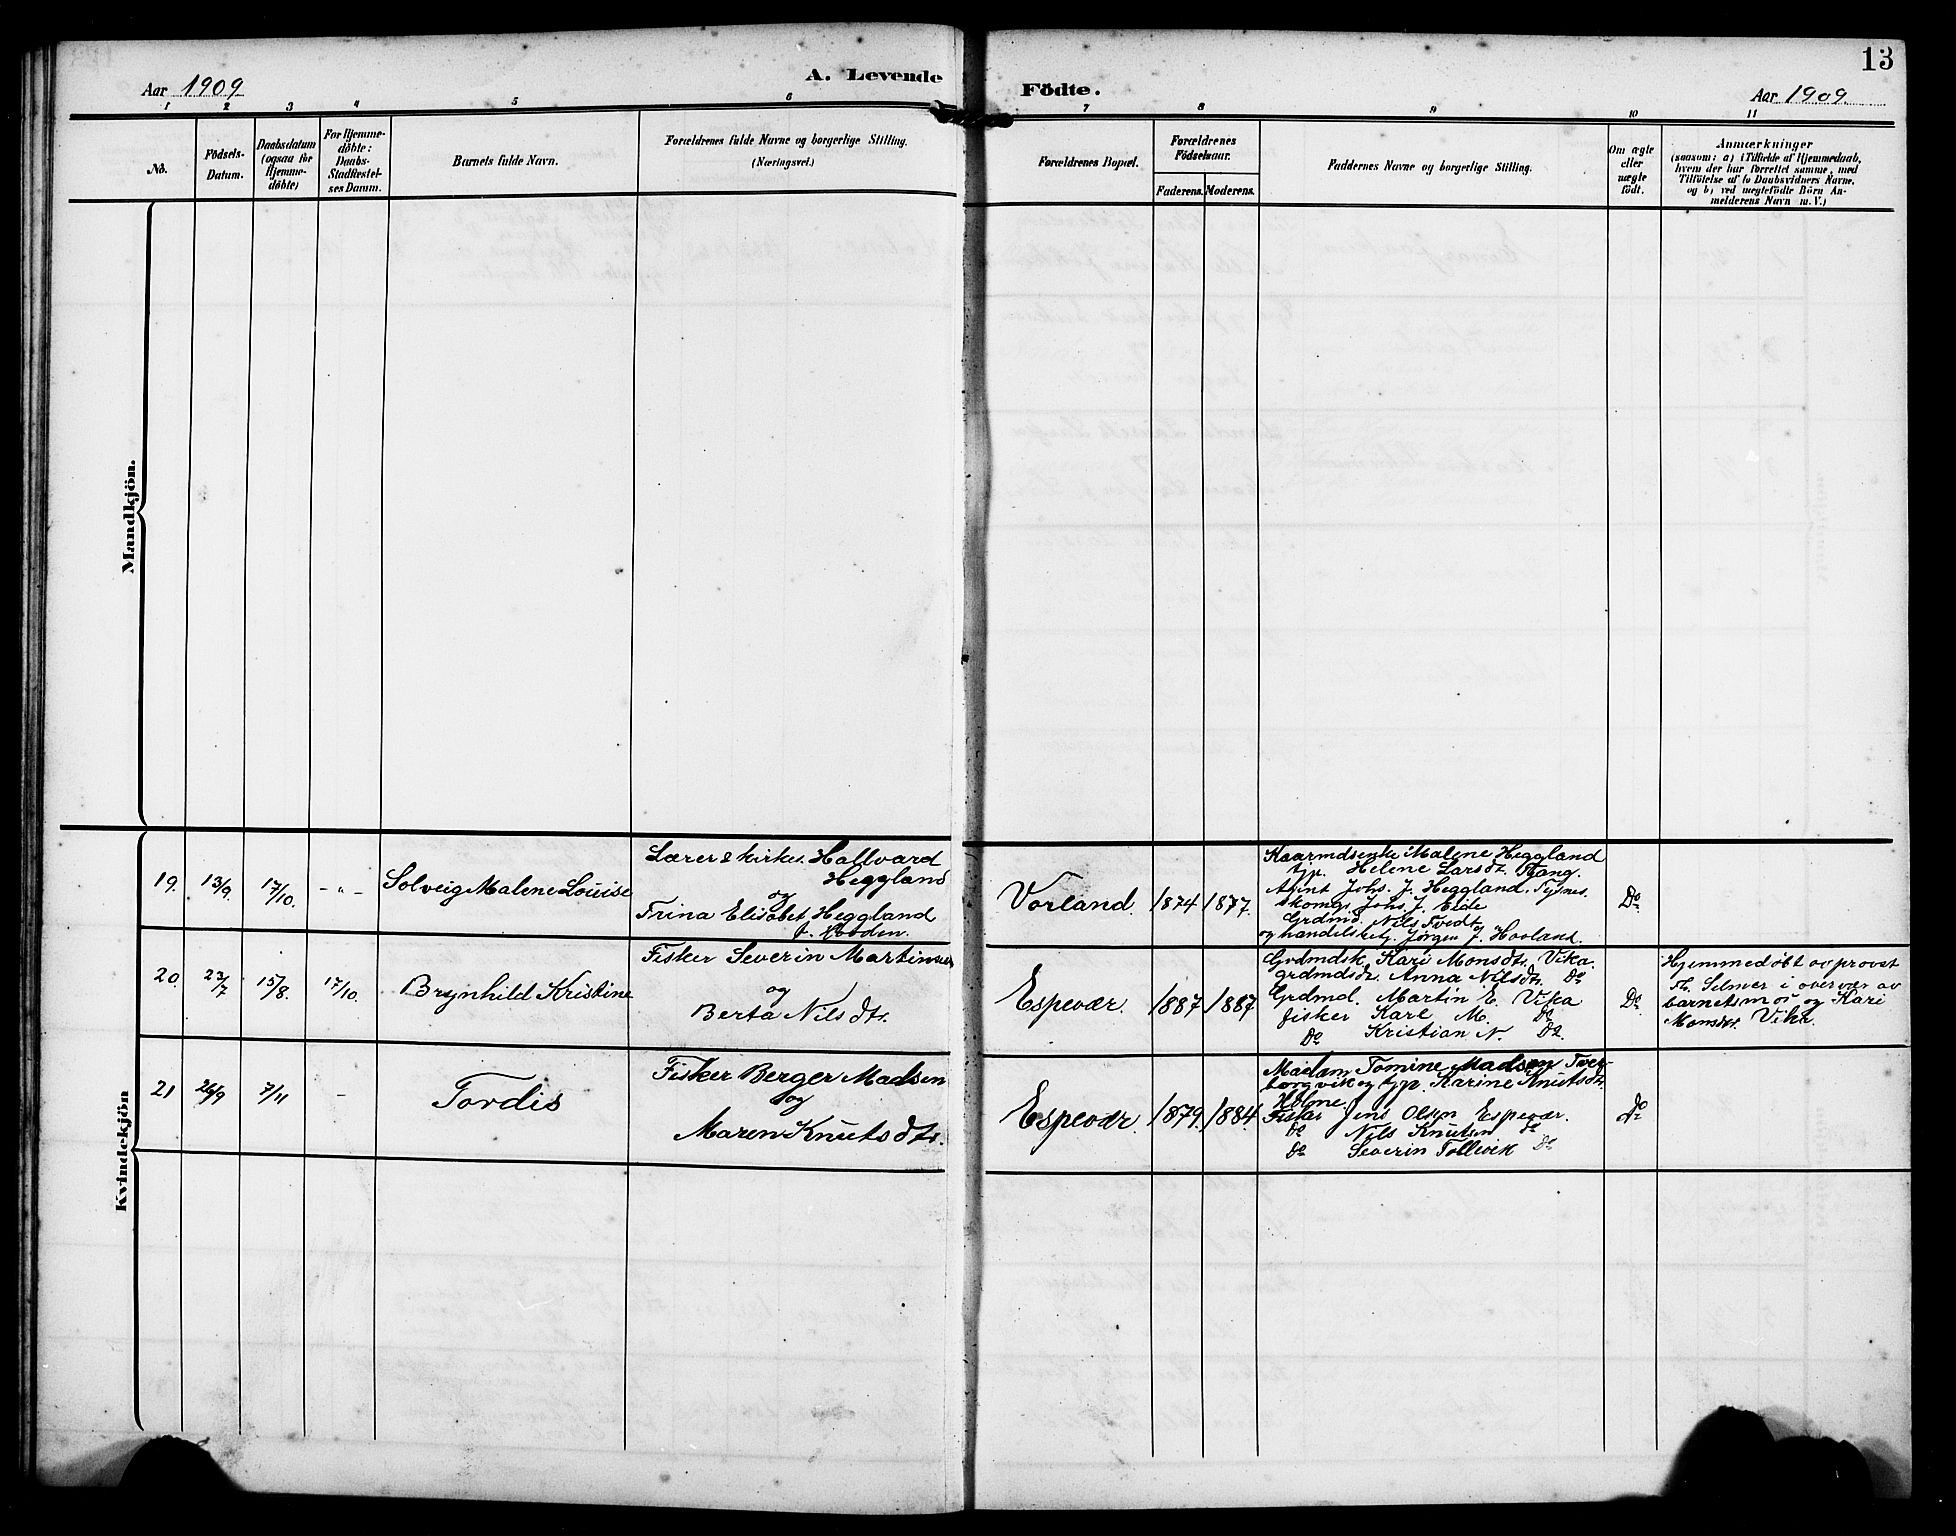 13
Aar 1909
A. Levende
Födte.
Aar 1909
1 2 3 4 5 6 7 8 9 10 11
No.
Födsels-
Datum.
Daabsdatum
(ogsaa for
Hjemme-
döbte)
For Hjemme-
döbte:
Daabs-
Stadfæstel-
ses Datum.
Barnets fulde Navn.
Forældrenes fulde Navne og borgerlige Stilling.
(Næringsvei.)
Forældrenes Bopæl.
Forældrenes
Födselsaar.
Faderens. Moderens.
Faddernes Navne og borgerlige Stilling.
Om ægte
eller
uægte
födt.
Anmærkninger
(saasom: a) i Tilfælde af Hjemmedaab,
hvem der har forrettet samme, med
Tilföielse af to Daabsvidners Navne,
og b) ved uægtefödte Börn An-
melderens Navn m. V.)
Mandkjön.
Kvindekjön
19. 13/9. 17/10. - " - Solveig Malene Louise
Lærer & kirkes. Hallvard
Heggland
og
Trina Elisabet Heggland
Vorland. 1874 1877.
Kaarmdsenke Malene Heggland
tjp. Helene Larsdt.
Agent Johs. J. Heggland.
Skomg. Johs. J. Eide
Grdmd. Nils Tvedt
og handelsbetj. Jørgen J. Hovland.
Do
20. 23/7 15/8. 17/10. Brynhild Kristine
Fisker Severin Martinsen
og
Berta Nilsdtr.
Espevær. 1887 1887
Grdmdsk. Kari Monsdt. Vika.
grdmdsd. Anna Nilsdt. Do
Grdmd. Martin E. Vika
fisker Karl M. Do
Do Kristian N. Do.
Do.
Hjemmedøbt av provst
Th. Selmer i overvær av
barnets mor og Kari
Monsdtr. Vika.
21 26/9 7/11 - Tordis
Fisker Berger Madsen
og
Maren Knutsdtr.
Espevær. 1879. 1884.
Madam Tomine Madsen Tver-
borgvik og tjp. Karine Knutsdt.
Holme.
Fisker Jens Olsen Espevær.
Do Nils Knutsen Do
Do Severin Tollevik Do
Do